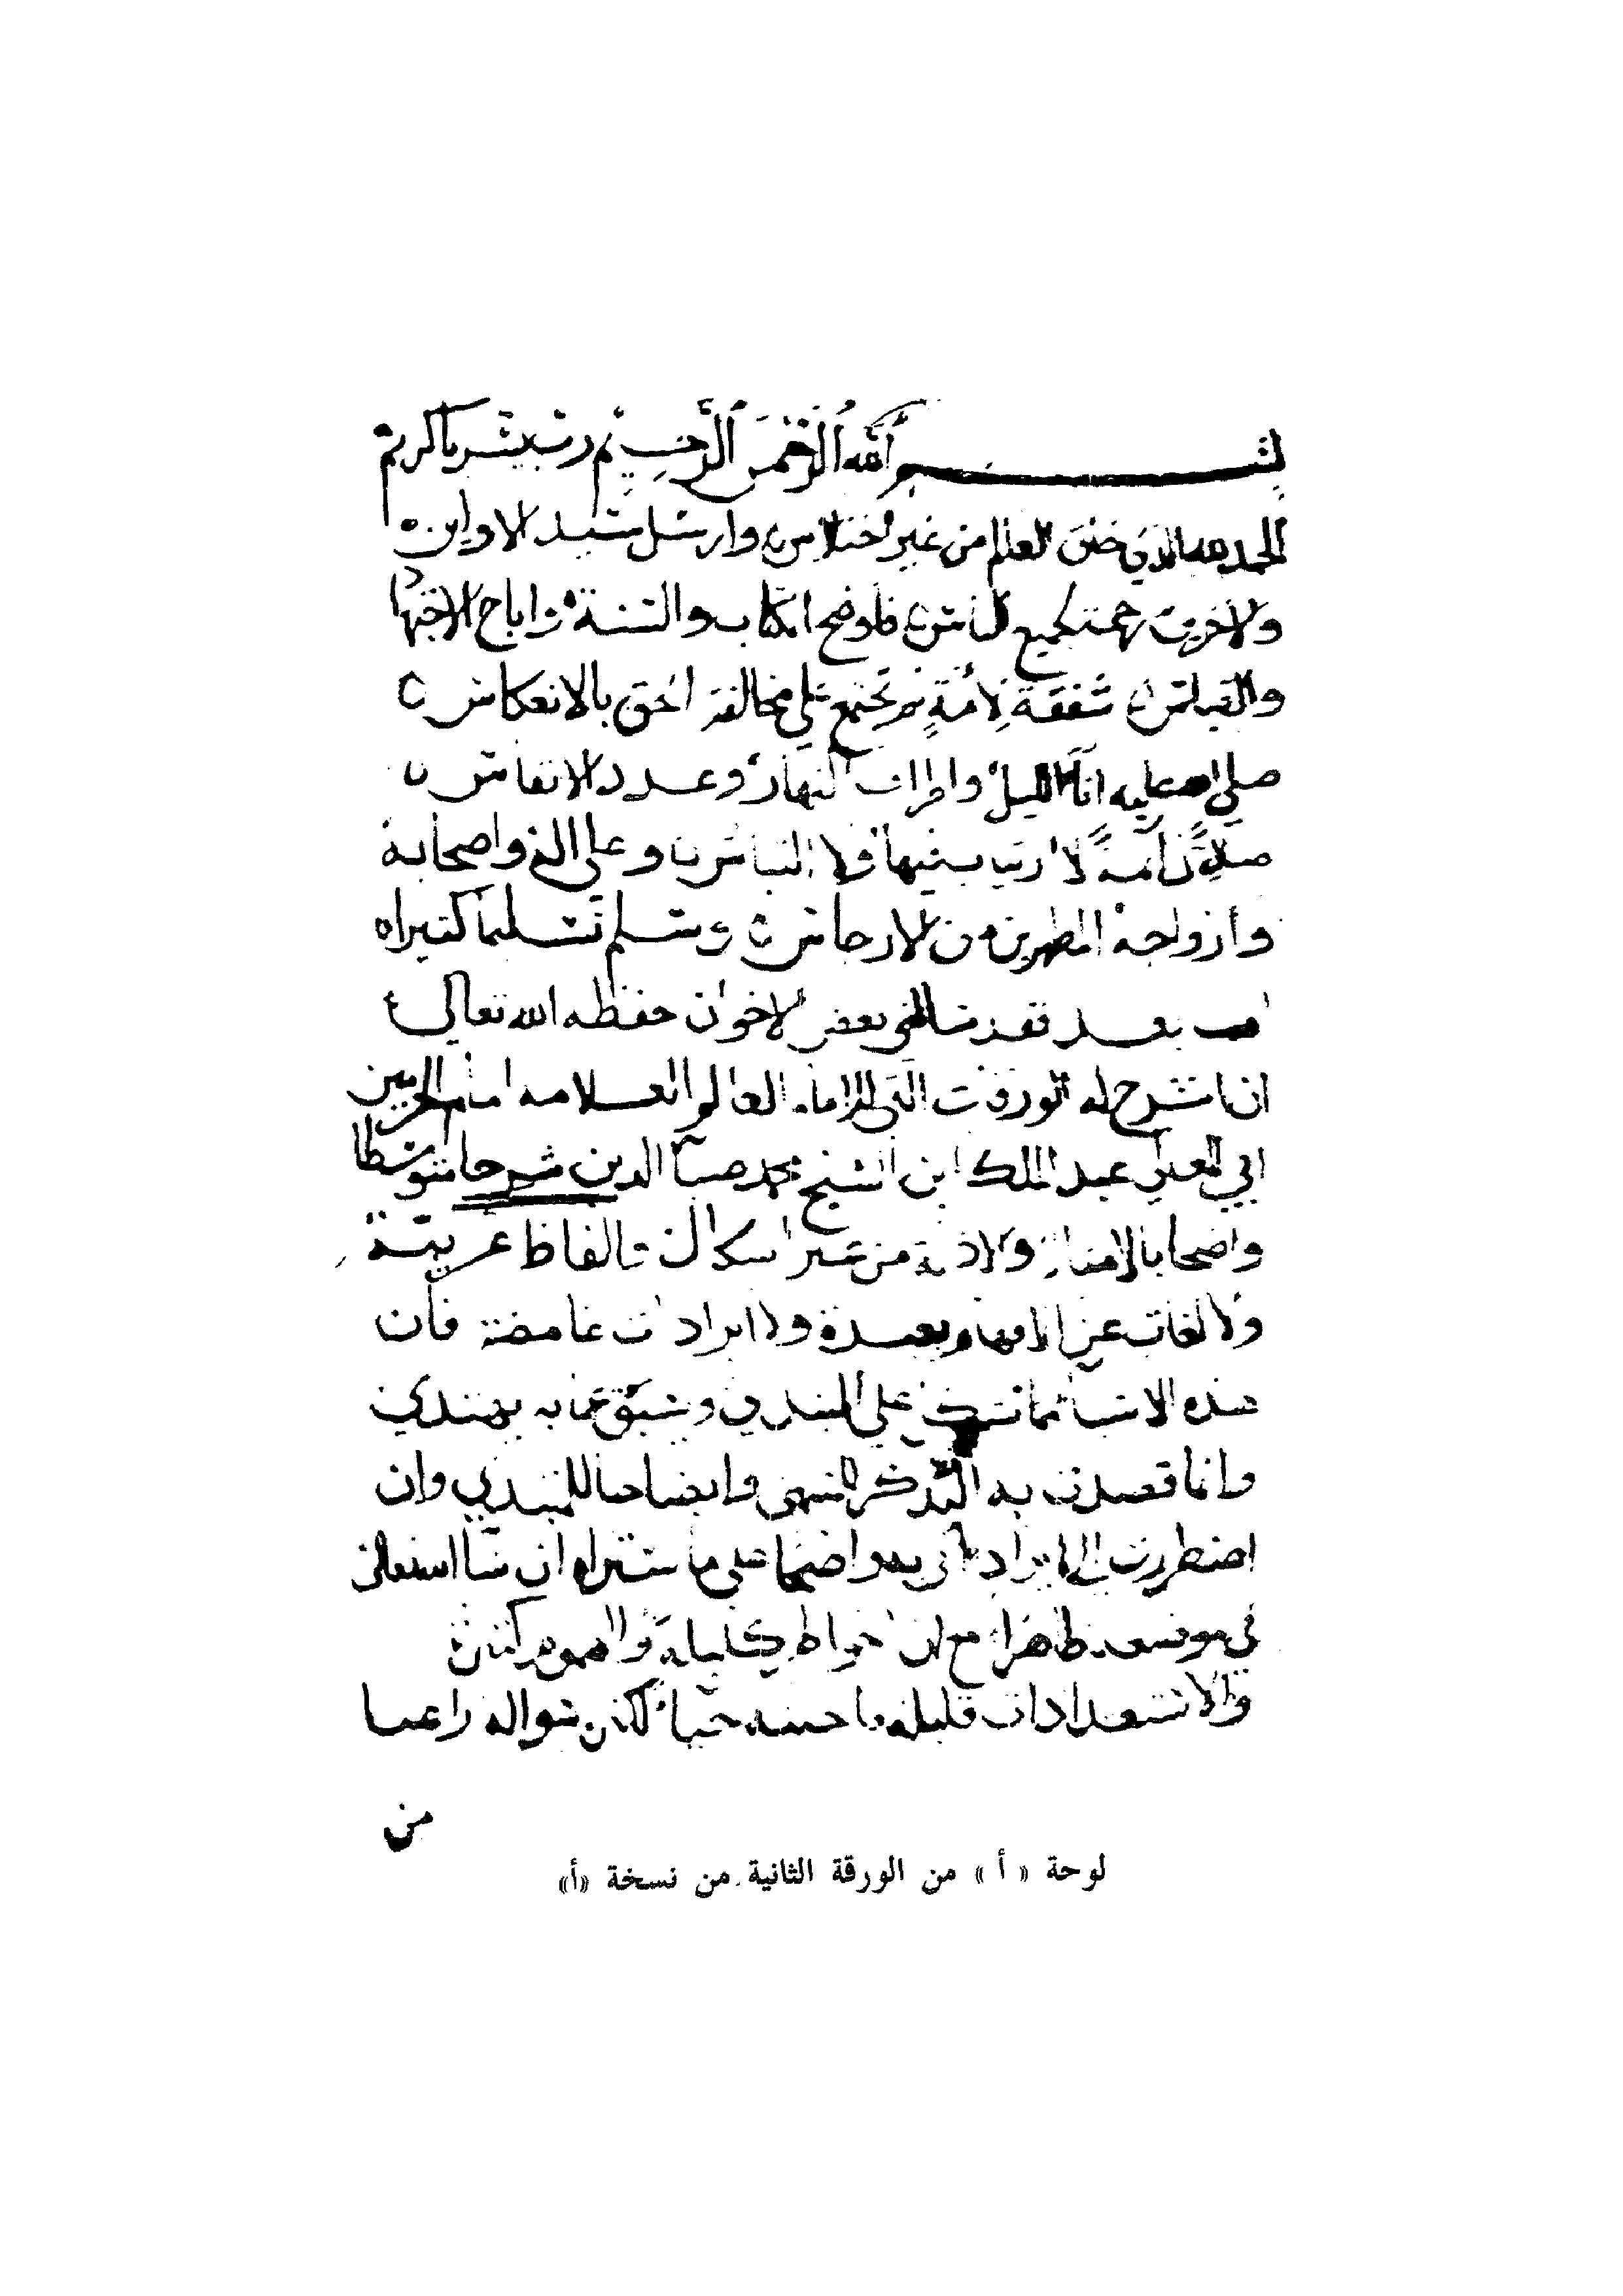 بسم الله الرحمن الرحيم رب يسر يا كريم
الحمد لله الذي خلق العالم من غير اختلاس وارسل سيد الاولين
والاخرين رحمة لجميع الناس فاوضح الكتاب والسنة واباح الاجتهاد
والقياس شفقة لامة لم تجتمع على مخالفة الحق بالانعكاس
صلى الله عليه اناء الليل واطراف النهار وعدد الانفاس
صلاة تامة لا ريب فيها ولا التباس وعلى اله واصحابه
وأزواجه المطهرين من الارجاس وسلم تسليما كثيرا
اما بعد فقد سالني بعض الاخوان حفظه الله تعالى
ان اشرح له الورقات التي للامام العالم العلامه امام الحرمين
ابي المعالي عبد الملك ابن الشيخ محمد ضيا الدين شرحا متوسطا
واضحا بالامثلة والادلة من غير اشكال بالفاظ عربية
ولا لغات عن الافهام بعيدة ولا ايرادات غامضة فان
هذه الاشيا مما تشكل على المبتدي وتعيق عما به يهتدي
وانما قصدت به التذكر للمنتهي وايضاحا للمبتدي وان
اضطررت الى ايراد اتي به واضحا على ما ستراه ان شا الله تعالى
في موضعه ظاهرا مع ان الخواطر كليلة والهموم كثيرة
والاستعدادات قليلة فاجبته حياء لكن سواله راغبا
من
لوحة « أ » من الورقة الثانية من نسخة «أ»